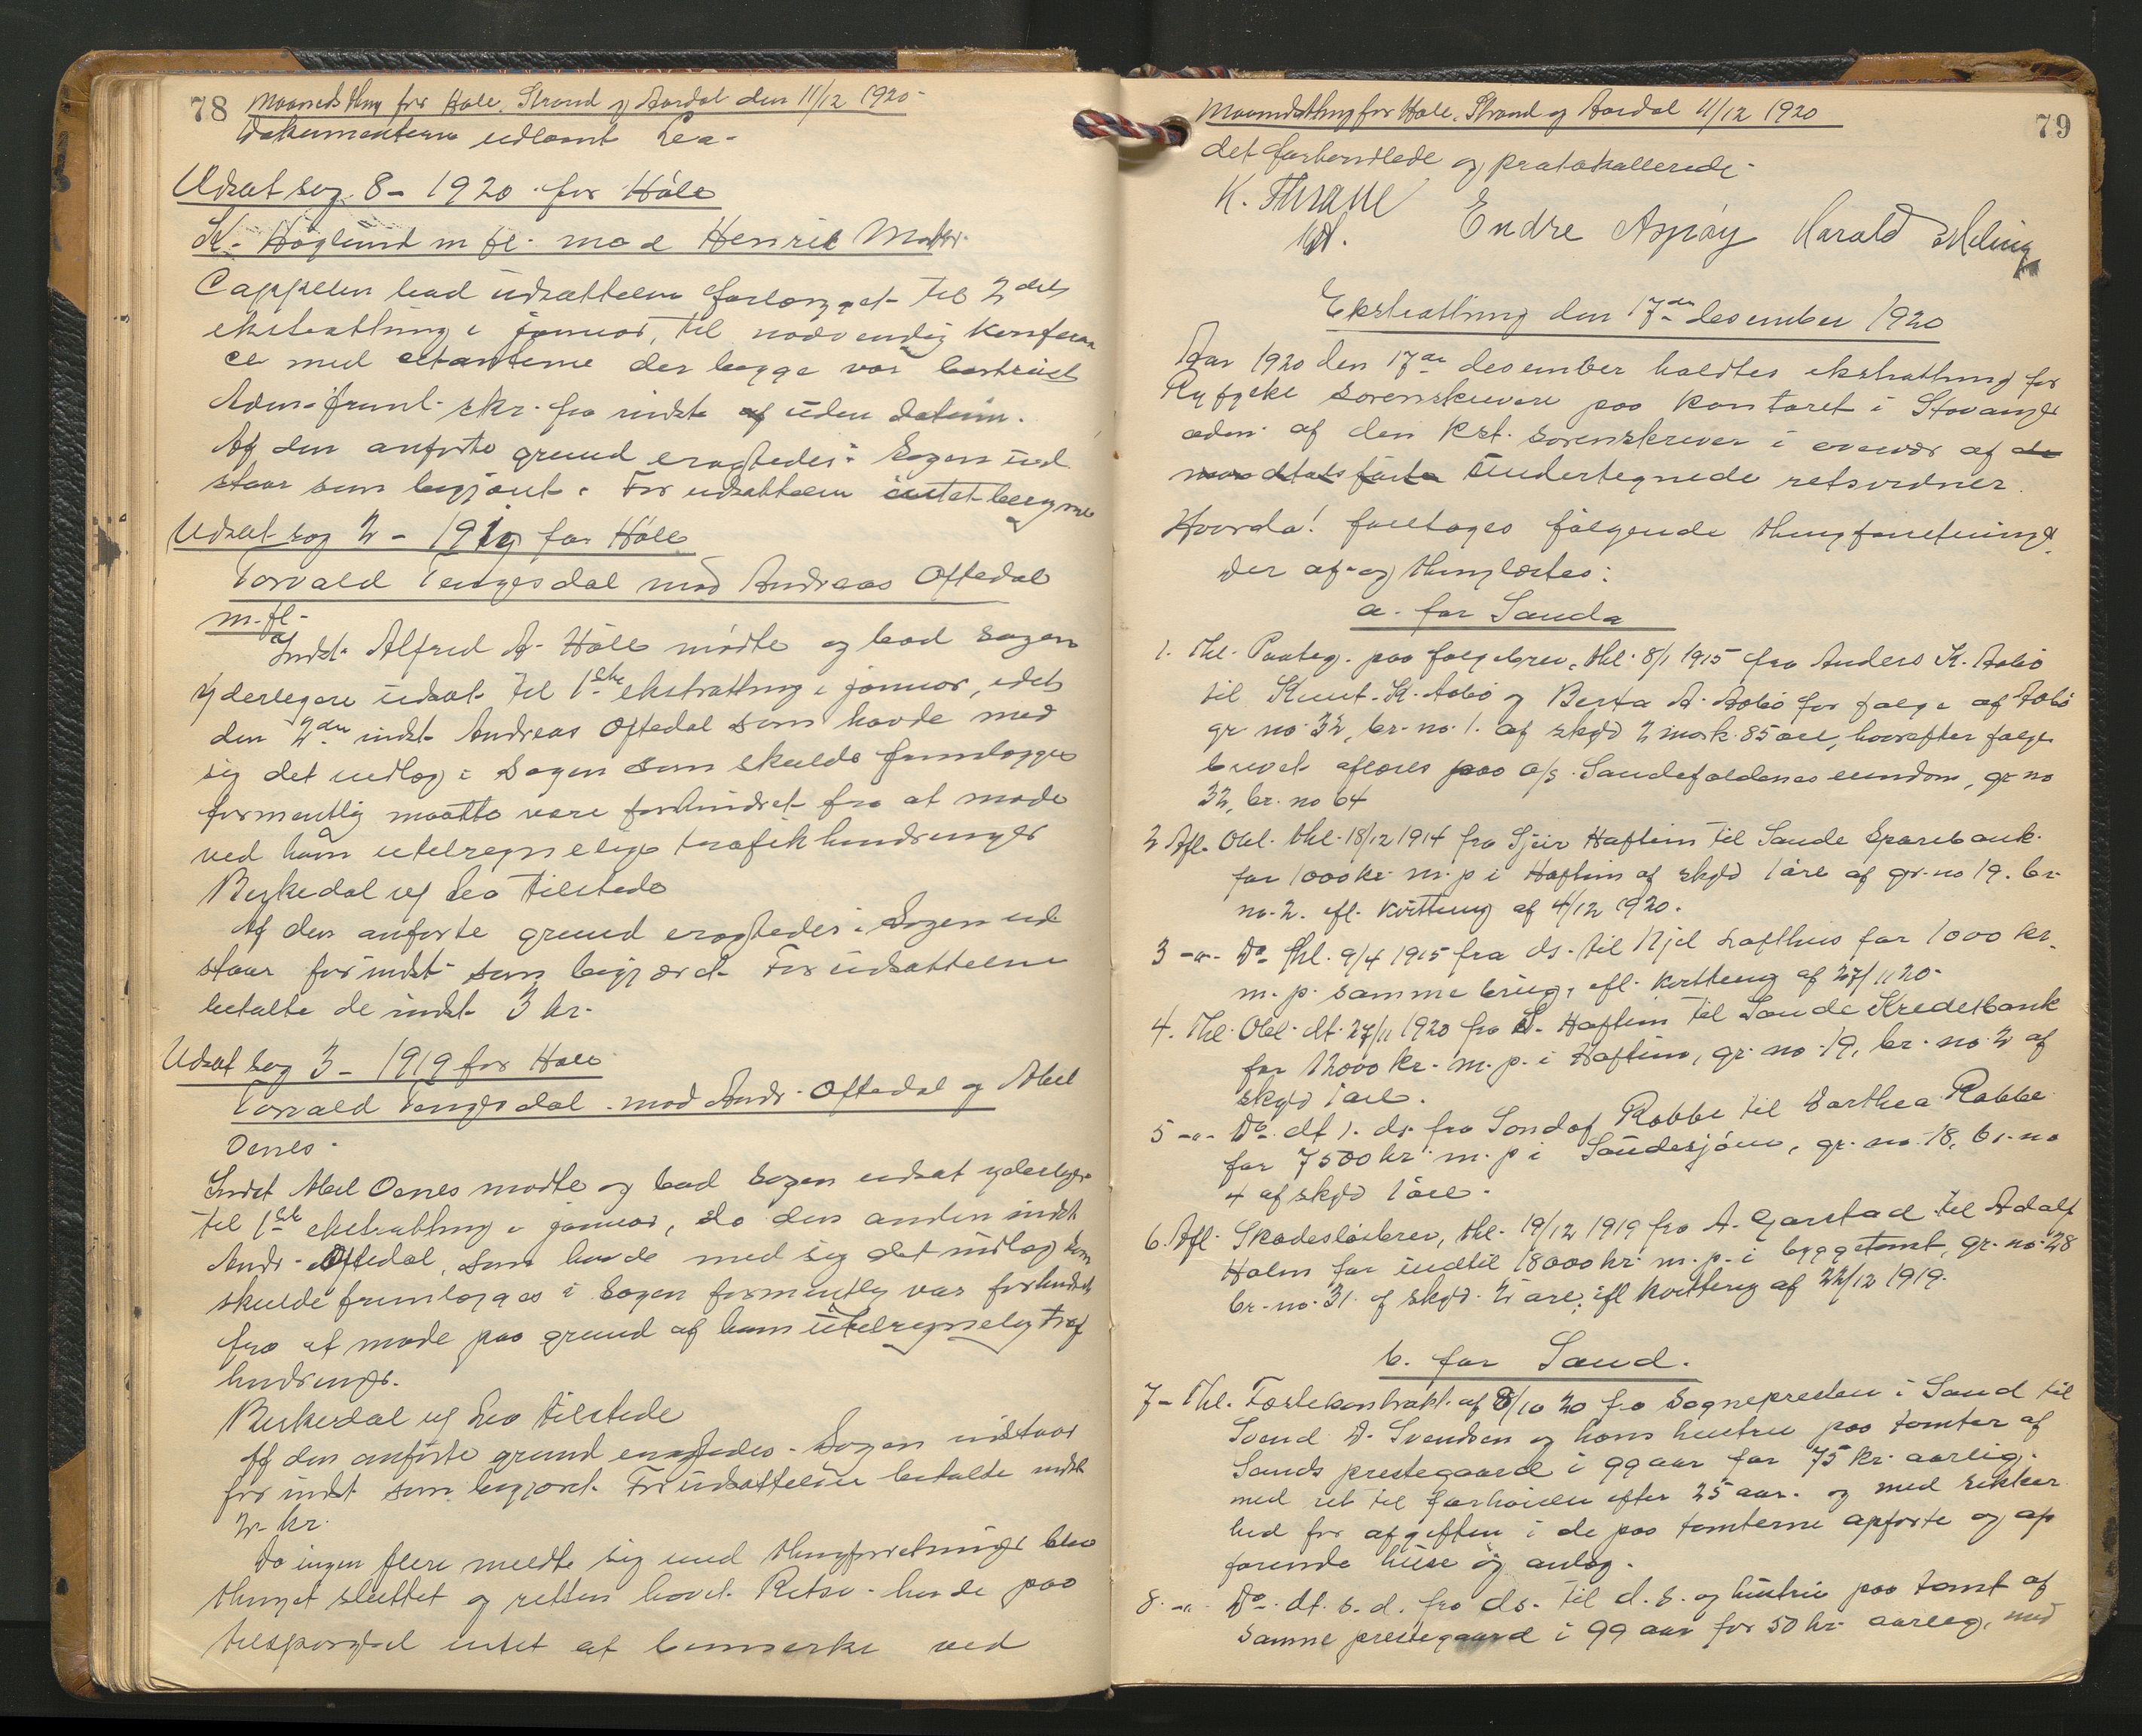 78 Maanedsthing for Høle, Strand og Aardal den 11/12 1920-
Dokumenterne udlaant Lea-
Udsat sag 8 - 1920 for Høle
K. Høglund m fl. mod Henrik Mathis.
Cappelen bad udsættelsen forlænget til 2det
ekstrathing i januar, til nødvendig konferan
ce med citanterne der begge var bortreist
fra indst. af uden datum.
Af den anførte grund eragtedes: Sagen ud
staar som begjært. For udsættelsen intet beregnet
Udsat sag 2 - 1919 for Høle
Torvald Tengesdal mod Andreas Oftedal
m. fl-
Indst. Alfred A. Høle mødte og bad sagen
yderligere udsat til 1ste ekstrathing i januar, idet
den 2den indst. Andreas Oftedal som havde med
sig det indlæg i sagen som skulde fremlægges
formentlig maatte være forhindret fra at møde
ved ham uberegnelige trafikhindringer
Birkedal vf Lea tilstede
Af den anførte grund eragtedes: Sagen ud
staar for indst. som begjæret. For udsættelsen
betalte de indst. 3 kr.
Udsat sag 3 - 1919 for Høle
Torvald Tengesdal mod Andr. Oftedal og Abel
Oenes-
Indst Abel Oenes mødte og bad sagen udsat yderliger
til 1ste ekstrathing i januar, da den anden indst
Andr. Oftedal, som havde med sig det indlæg som
skulde fremlægges i sagen formentlig var forhindret
fra at møde paa grund af ham uberegnelig traf
hindringer.
Birkedal vf Lea tilstede
Af den anførte grund eragtedes- Sagen udstaar
for indst. som begjæret. For udsættelsen betalte indst
2- kr.
Da ingen flere meldte sig med thingforretninger blev
thinget sluttet og retten hævet. Retsv. havde paa
tilspørgsel intet at bemerke ved
Maanedsthing for Høle, Strand og Aardal 11/12 1920
79
det forhandlede og protokollerede-
K. Thrane
kst. Endre Aspøy Harald Meling
Ekstrathing den 17de desember 1920
Aar 1920 den 17de desember holdtes ekstrathing for
Ryfylke sorenskriveri paa kontoret i Stavanger
adm. af den kst. sorenskriver i overvær af de
undertegnede retsvidner.
Hvorda! foretoges følgende thingforretninger
der af- og thinglæstes:
a. for Sauda
1. Thl. Paateg. paa følgebrev, thl. 8/1 1915 fra Anders K. Aabø
til Knut K. Aabø og Berta A. Aabø for følge af Aabø
gr. no. 32, br. no. 1. af skyld 2 mark 85 øre, hvorefter følge
brevet aflæses paa A/S. Saudefaldenes eiendom, gr no
32, br. no 64
2 Afl. Obl. thl. 18/12 1914 fra Sjur Haftun til Saude Sparebank.
for 1000 kr. m. p i Haftun af skyld 1 øre af gr. no 19. br-
no. 2. ifl. kvittering af 4/12 1920.
3 -"- Do thl. 9/4 1915 fra ds. til Njel Lofthus for 1000 kr.
m. p. samme brug, ifl. kvittering af 27/11 20-
4. Thl. Obl. dt. 27/11 1920 fra S. Haftun til Saude Kreditbank
for 12000 kr. m. p. i Haftun, gr. no. 19, br. no. 2 af
skyld 1 øre.
5 -"- Do dt 1. ds. fra Sondof Rabbe til Dorthea Rabbe
for 7500 kr. m. p i Saudesjøen, gr. no. 18, br. no
4 af skyld 1 øre.
6. Afl. Skadesløsbrev, thl. 19/12 1919 fra A. Gjarstad til Adolf
Holm for indtil 18000 kr. m. p. i byggetomt, gr. no. 28
br. no. 31 af skyld. 2 øre, ifl kvittering af 22/12 1919.
b. for Sand.
7- Thl. Fæstekontrakt. af 8/10 20 fra Sognepresten i Sand til
Svend D. Svendsen og hans hustru paa tomter af
Sands prestegaard i 99 aar for 75 kr. aarlig.
med ret til forhøielse efter 25 aar. og med sikker
hed for afgiften i de paa tomterne opførte og op
førende huse og anlæg.
8. -"- Do. dt. s. d. fra ds. til d. s. og hustru paa tomt af
samme prestegaard i 99 aar for 50 kr. aarlig, med